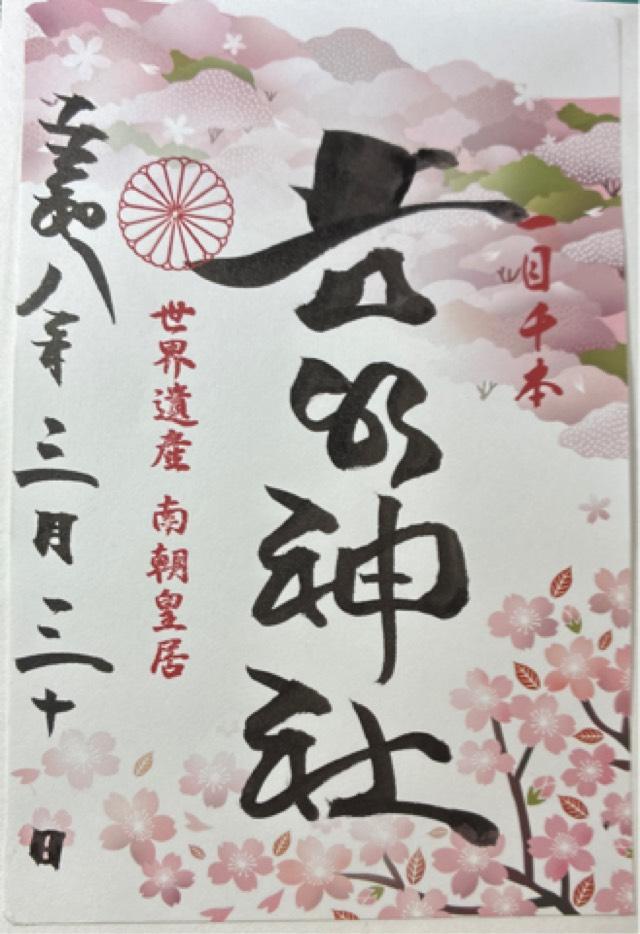 一目千本
吉水神社
世界遺産 南朝皇居
令和八年三月三十日